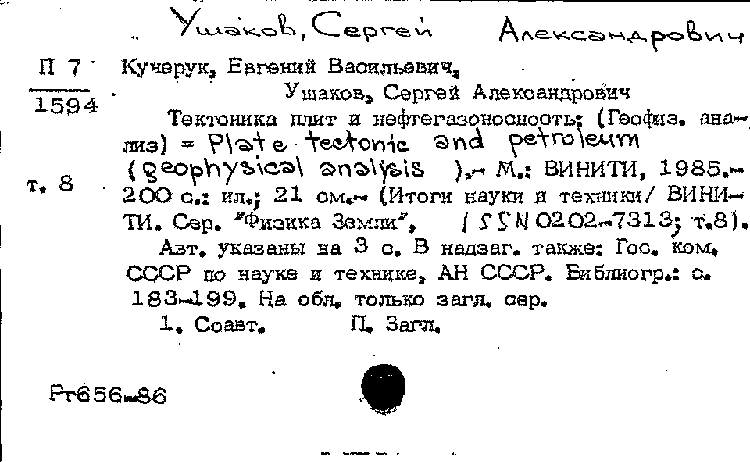 Ушаков, Сергей Александрович
П 7 Кучерук, Евгений Васильевич,
1594 Ушаков, Сергей Александрович
Тектоника плит и нефтегазоносность: (Геофиз. ана-
лиз) = Plate tectonic and petroleum
(geophysical analysis ).- М.: ВИНИТИ, 1985.-
т. 8 200 с.: ил.; 21 см.- (Итоги науки и техники/ ВИНИ-
ТИ. Сер. "Физика Земли", ISSN 0202-7313; т.8).
Авт. указаны на 3 с. В надзаг. также: Гос. ком.
СССР по науке и технике, АН СССР. Библиогр.: с.
183-199. На обл. только загл. сер.
1. Соавт. П. Загл.
Рт656-86